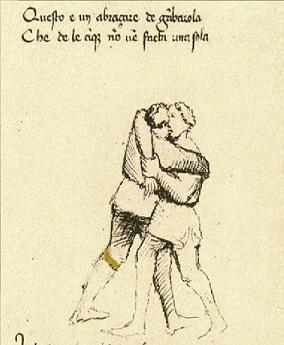 Questo e un abraçare de gãbarola
Che de le cinq̃ nõ ue facta una sola